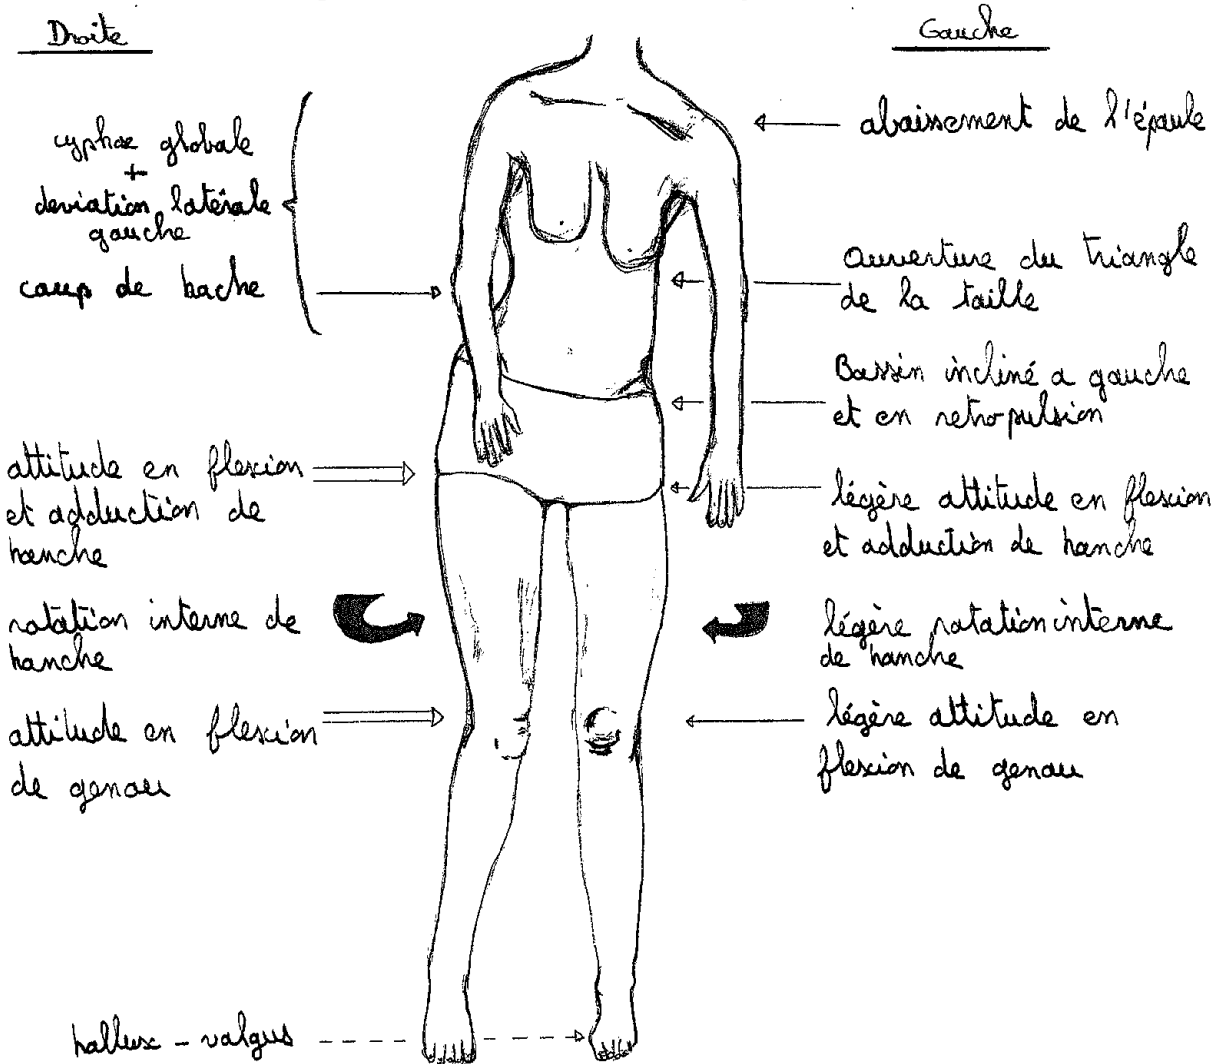 Droite
cyphose globale
+
deviation latérale
gauche
coup de hache
attitude en flexion
et adduction de
hanche
rotation interne de
hanche
attitude en flexion
de genou
hallux - valgus
Gauche
abaissement de l'épaule
ouverture du triangle
de la taille
Bassin incliné a gauche
et en retropulsion
légère attitude en flexion
et adduction de hanche
légère rotation interne
de hanche
légère attitude en
flexion de genou